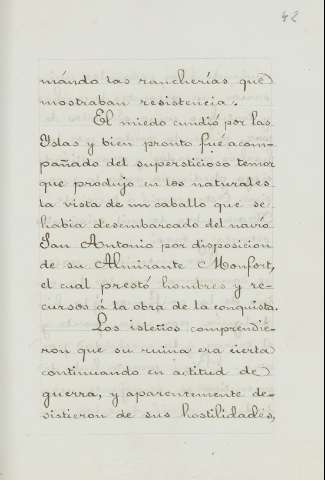 42
mándo las rancherías que
mostraban resistencia.
El miedo cundió por las
Yslas y bien pronto fué acom-
pañado del supersticioso temor
que produjo en los naturales
la vista de un caballo que se
habia desembarcado del navío
San Antonio por disposicion
de su Almirante Monfort,
el cual prestó hombres y re-
cursos á la obra de la conquista.
Los isleños comprendie-
ron que su ruina era cierta
continuando en actitud de
guerra, y aparentemente de-
sistieron de sus hostilidades,